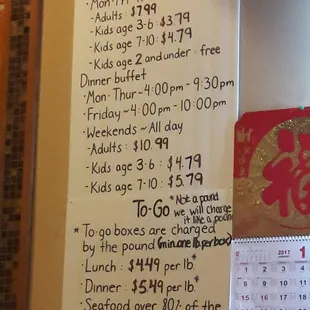 · Adults : $7.99
· Kids age 3-6 : $3.79
· Kids age 7-10 : $4.79
· Kids age 2 and under : free
Dinner buffet
· Mon-Thur ~ 4:00 pm - 9:30 pm
· Friday ~ 4:00 pm - 10:00 pm
· Weekends ~ All day
· Adults : $10.99
· Kids age 3-6 : $4.79
· Kids age 7-10 : $5.79
To-Go
*Not a pound
we will charge
it like a pound
* To-go boxes are charged
by the pound (min one lb per box)
· Lunch : $4.49 per lb*
· Dinner : $5.49 per lb*
· Seafood over 80% of the
福
2017 1
1 2 3 4
8 9 10 11
15 16 17 18